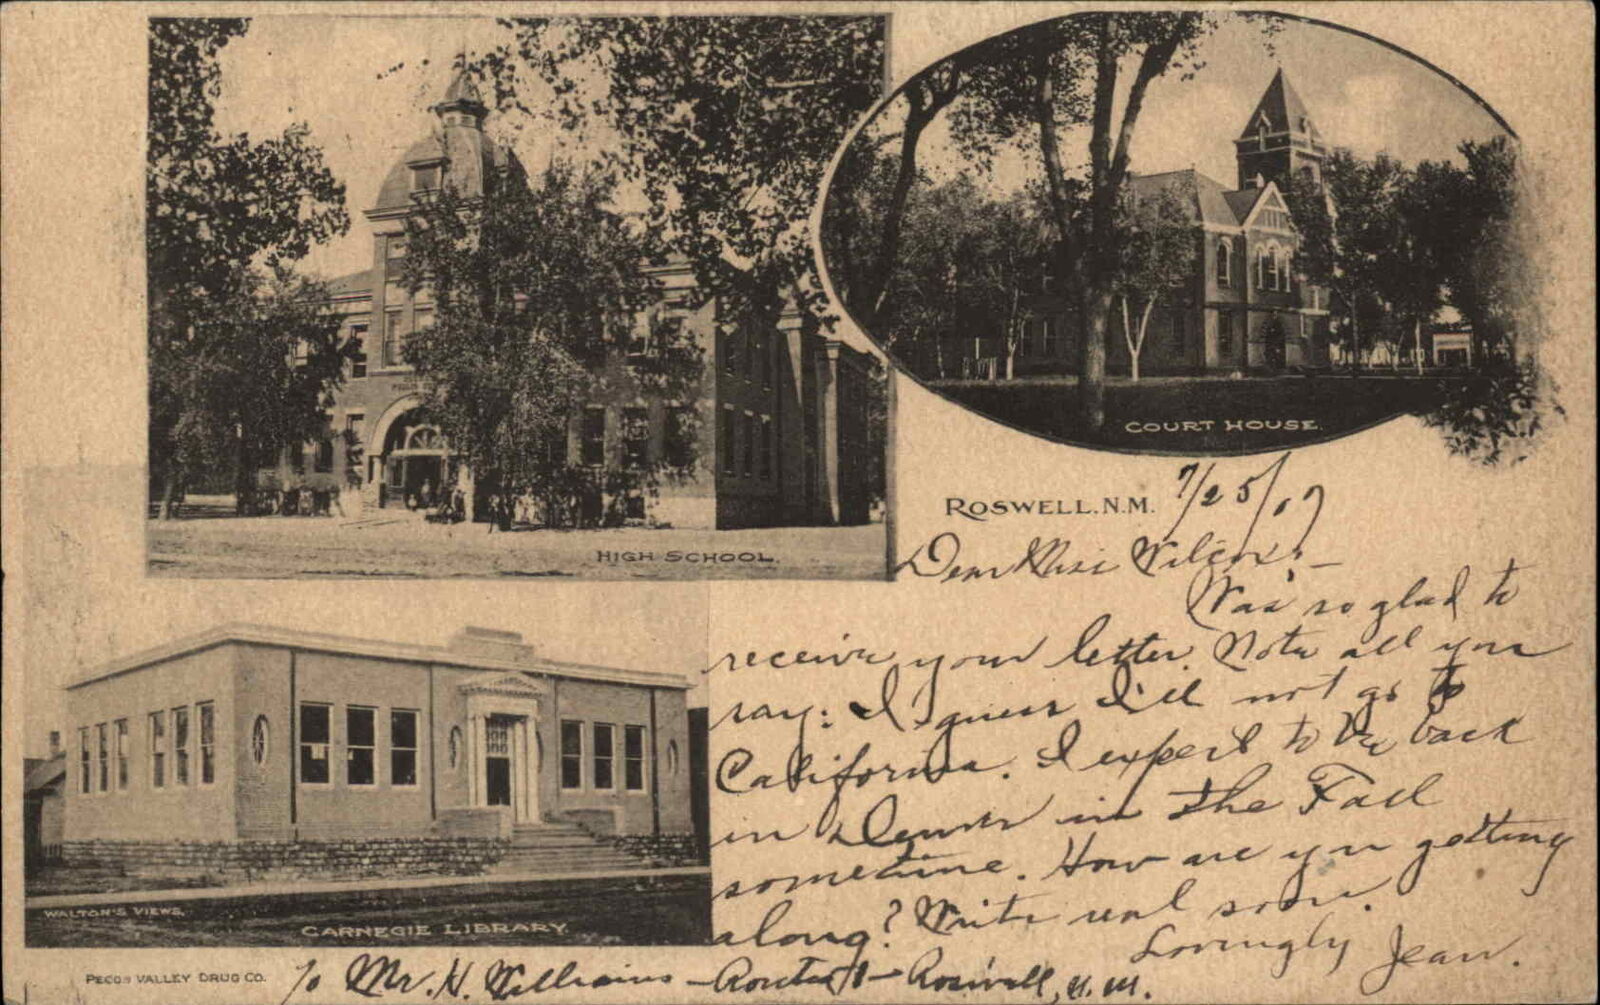 HIGH SCHOOL.
COURT HOUSE.
ROSWELL, N.M. 7/25/07
Dear Miss Wilcox:—
Was so glad to
receive your letter. Note all you
say: I guess I'll not go to
California. I expect to be back
in Denver in the Fall
sometime. How are you getting
along? Write real soon.
Lovingly Jean.
WALTON'S VIEWS.
CARNEGIE LIBRARY
PECOS VALLEY DRUG CO.
To Mr. H. Williams – Route 1 – Roswell, N.M.